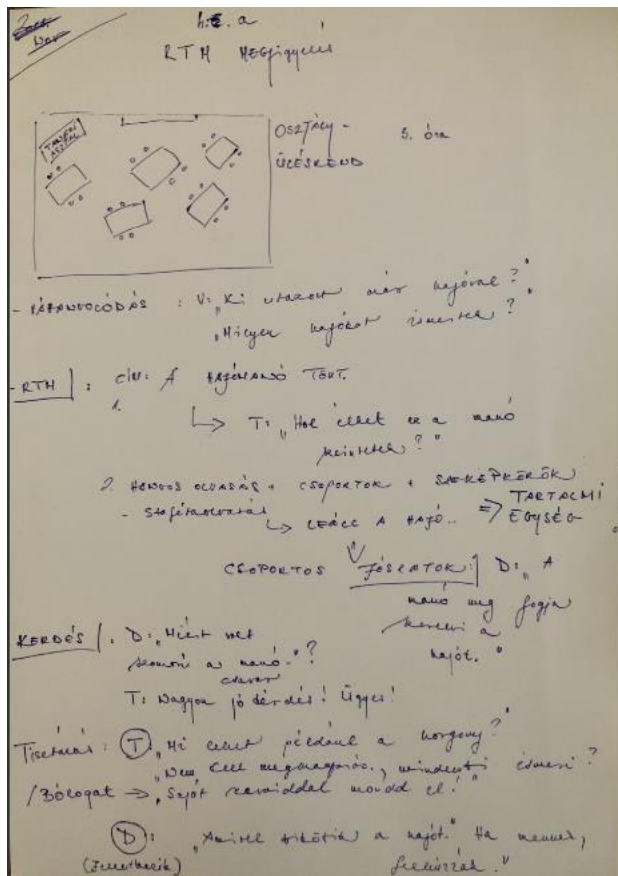 h. E. a
RTM MEGfigyelés
TANÁRI
ASZTAL
OSZTÁLY-
ÜLÉSREND
5. óra
- RÁHANGOLÓDÁS : V: „Ki utazott már hajóval?"
„Milyen hajókat ismertek?
- RTM : CÍM: A HAJÓMANÓ TÖRT.
1.
T: „Hol élhet ez a manó
szerintetek?"
2. HANGOS OLVASÁS + CSOPORTOK +
- Stafétaolvasás
LEÁLL A HAJÓ..
TARTALMI
EGYSÉG
CSOPORTOS JÓSLATOK: D: „A
manó meg fogja
keresni a
hajót."
KÉRDÉS : D: „Miért lett
szomorú a manó."?
T: Nagyon jó kérdés! Ügyes!
Tisztázás: T: „Mi lehet például a horgony?"
„Nem kell megmagyarázni, mindenki ismeri?
/Bólogat → „Saját szavaiddal mondd el!"
D: „Amivel kikötik a hajót." Ha mennek,
(Jelentkezik) felhúzzák."